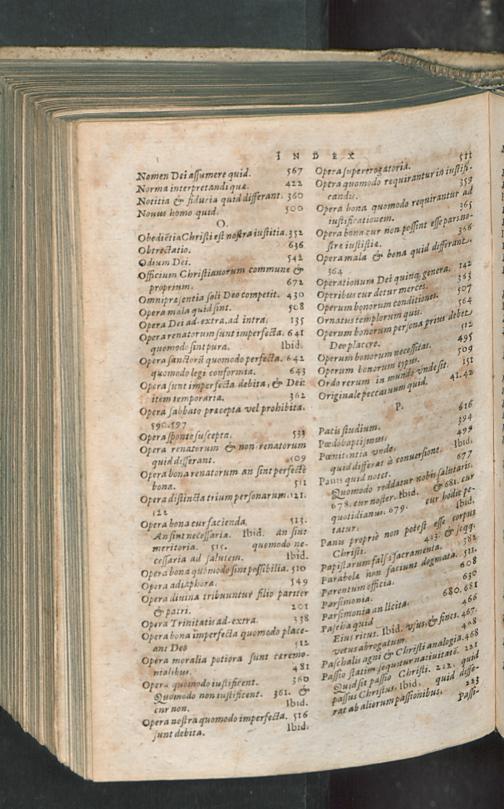 INDEX
Nomen Dei assumere quid. 567
Norma interpretandi quæ. 422
Notitia & fiducia quid differant. 360
Nouus homo quid. 500
O.
Obediētia Christi est nostra iustitia. 352
Obtrectatio. 636
Odium Dei. 542
Officium Christianorum commune &
proprium. 672
Omnipræsentia soli Deo competit. 430
Opera mala quid sint. 508
Opera Dei ad extra, ad intra. 135
Opera renatorum sunt imperfecta. 641
quomodo sint pura. Ibid.
Opera sanctorū quomodo perfecta. 642
quomodo legi conformia. 643
Opera sunt imperfecta debita, & Dei:
item temporaria. 362
Opera sabbato præcepta vel prohibita.
590. 597
Opera sponte suscepta. 533
Opera renatorum & non renatorum
quid differant. 509
Opera bona renatorum an sint perfectè
bona. 511
Opera distincta trium personarum. 121.
122
Opera bona cur facienda. 513.
An sint necessaria. Ibid. an sint
meritoria. 515. quomodo ne-
cessaria ad salutem. Ibid.
Opera bona quomodo sint possibilia. 510
Opera adiaphora. 549
Opera diuina tribuuntur filio pariter
& patri. 201
Opera Trinitatis ad extra. 338
Opera bona imperfecta quomodo place-
ant Deo 512
Opera moralia potiora sunt ceremo-
nialibus. 481
Opera quomodo iustificent. 360
Quomodo non iustificent. 361. &
cur non. Ibid.
Opera nostra quomodo imperfecta. 516
sunt debita. Ibid.
Opera supererogatoria. 511
Opera quomodo requirantur in iustifi-
candis. 359
Opera bona quomodo requirantur ad
iustificationem. 365
Opera bona cur non possint esse pars no-
stræ iustitiæ. 366
Opera mala & bona quid differant.
364
Operationum Dei quinq; genera. 142
Operibus cur detur merces. 363
Operum bonorum conditiones. 507
Ornatus templorum quis. 564
Operum bonorum persona prius debet
Deo placere. 512
Operum bonorum necessitas. 495
Operum bonorum typus. 509
Ordo rerum in mundo vnde sit. 151
Originale peccatum quid. 41. 42
P.
Pacis studium. 616
Pædobaptismus. 394
Pœnitentia vnde.
quid differat à conuersione. Ibid.
Panis quid notet. 677
Quomodo reddatur nobis salutaris.
678. cur noster. Ibid. & 681. cur
quotidianus. 679. cur hodie pe-
tatur. Ibid.
Panis propriè non potest esse corpus
Christi. 423. & seqq.
Papistarum falsa sacramenta. 382
Parabolæ non faciunt dogmata. 511.
Parentum officia. 608
Parsimonia. 638
Parsimonia an licita. 680. 681
Pascha quid 466
Eius ritus. Ibid. vsus, & fines. 467.
vetus abrogatum. 468
Paschalis agni & Christi analogia. 468
Passio statim sequitur natiuitatē. 221
Quid sit passio Christi. 212. quid
passus Christus. Ibid. quid diffe-
rat ab aliorum passionibus. 223
Passi-